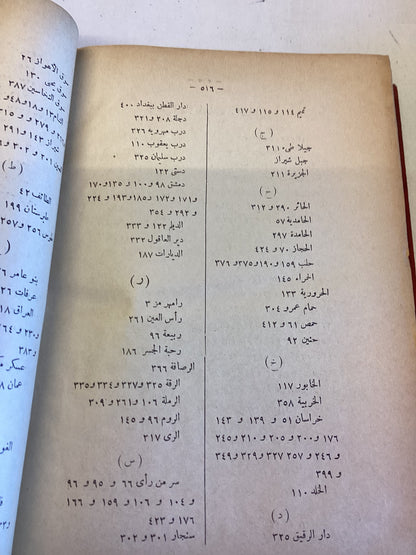 - ٥١٦ -
تميم ١١٤ و ١١٥ و ٤١٧
(ج)
جبلا طىء ٣١١
جبل شيراز
الجزيرة ٢١١
(ح)
الحائر ٢٩٠ و ٣١٢
الحامدية ٥٧
الحامدة ٢٩٧
الحجاز ٧٠ و ٤٢٤
حلب ١٥٩ و ١٩٠ و ٢٧٥ و ٣٧٦
الحراء ١٤٥
الحرورية ١٣٣
حمام عمرو ٣٠٤
حمص ٦١ و ٤١٢
حنين ٩٢
(خ)
الخابور ١١٧
الخريبة ٣٥٨
خراسان ٥١ و ١٣٩ و ١٤٣
١٧٦ و ٢٠٠ و ٢٠٥ و ٢١٠ و ٢٤٥
و ٢٤٦ و ٢٥٧ و ٣٢٧ و ٣٢٩ و ٣٤٩
و ٣٩٩
الخلد ١١٠
(د)
دار الرقيق ٣٢٥
دار القطن ببغداد ٤٠٠
دجلة ٢٠٨ و ٣٢١
درب مهرويه ٢٢٦
درب يعقوب ١١٠
درب سليمان ٣٢٥
دستى ١٢٢
دمشق ٩٨ و ١٠٠ و ١٣٥ و ١٧٠
و ١٧١ و ١٧٢ و ١٨٥ و ١٩٣ و ٢٢٤
و ٢٩٢ و ٣٥٤
الديلم ١٢٢ و ٣٣٣
دير العاقول ٣٣٢
الديارات ١٨٧
(ر)
رامهرمز ٣
رأس العين ٢٦١
ربيعة ٩٦
رحبة الجسر ١٨٦
الرصافة ٣٩٦
الرقة ٣٢٥ و ٣٢٧ و ٣٣٤ و ٣٣٥
الرملة ١٠٦ و ٢٦١ و ٣٠٩
الروم ٩٦ و ١٤٥
الرى ٢١٧
(س)
سر من رأى ٦٦ و ٩٥ و ٩٦
و ١٠٤ و ١٠٦ و ١٥٩ و ١٦٦
١٧٦ و ٤٢٣
سنجار ٣٠١ و ٣٠٢
سوق الاهواز ٢٦
سوق يحيى ١٣٠
سوق النحاسين ٣٨٧
(ط)
الطائف ٤٢
طبرستان ١٩٩
بنو عامر
عرفات
العراق
عمان